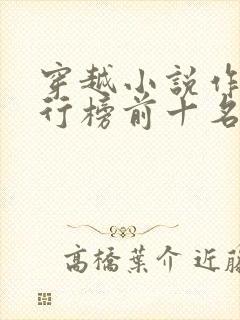 穿越小說作
行榜前十名
高橋葉介 近藤